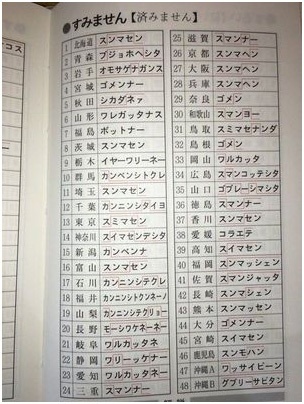 ●すみません【済みません】
1 北海道 スンマセン
2 青森 ブジョホヘシタ
3 岩手 オモサゲナガンス
4 宮城 ゴメンナー
5 秋田 シカダネァ
6 山形 ワレガッタナス
7 福島 ボットナー
8 茨城 スンマセン
9 栃木 イヤーワリーネー
10 群馬 カンベンシテクンナイ
11 埼玉 スンマセン
12 千葉 カンニンシタイヨ
13 東京 スミマセン
14 神奈川 スイマセンデシタ
15 新潟 カンベンナ
16 富山 スンマセン
17 石川 カンニンシテクレ
18 福井 カンニンシトクンネーノ
19 山梨 カンニンシテクリョー
20 長野 モーシワケネーネー
21 岐阜 ワルカッタ
22 静岡 ワリーッケナー
23 愛知 ワルカッタネー
24 三重 スマンナー
25 滋賀 スマンナー
26 京都 スンマヘン
27 大阪 スンマヘン
28 兵庫 スンマヘン
29 奈良 ゴメン
30 和歌山 スマンヨー
31 鳥取 スミマセナンダ
32 島根 ゴメン
33 岡山 ワルカッタ
34 広島 スマンコッテシタ
35 山口 ゴブレーシマシタ
36 徳島 スマンナー
37 香川 スンマセン
38 愛媛 コラエテ
39 高知 スイマセン
40 福岡 スンマッシェン
41 佐賀 スマンジャッタ
42 長崎 スンマシェン
43 熊本 スンマッセン
44 大分 ゴメンナー
45 宮崎 スイマセン
46 鹿児島 スンモハン
47 沖縄A ワッサイビーン
48 沖縄B グブリーサビタン